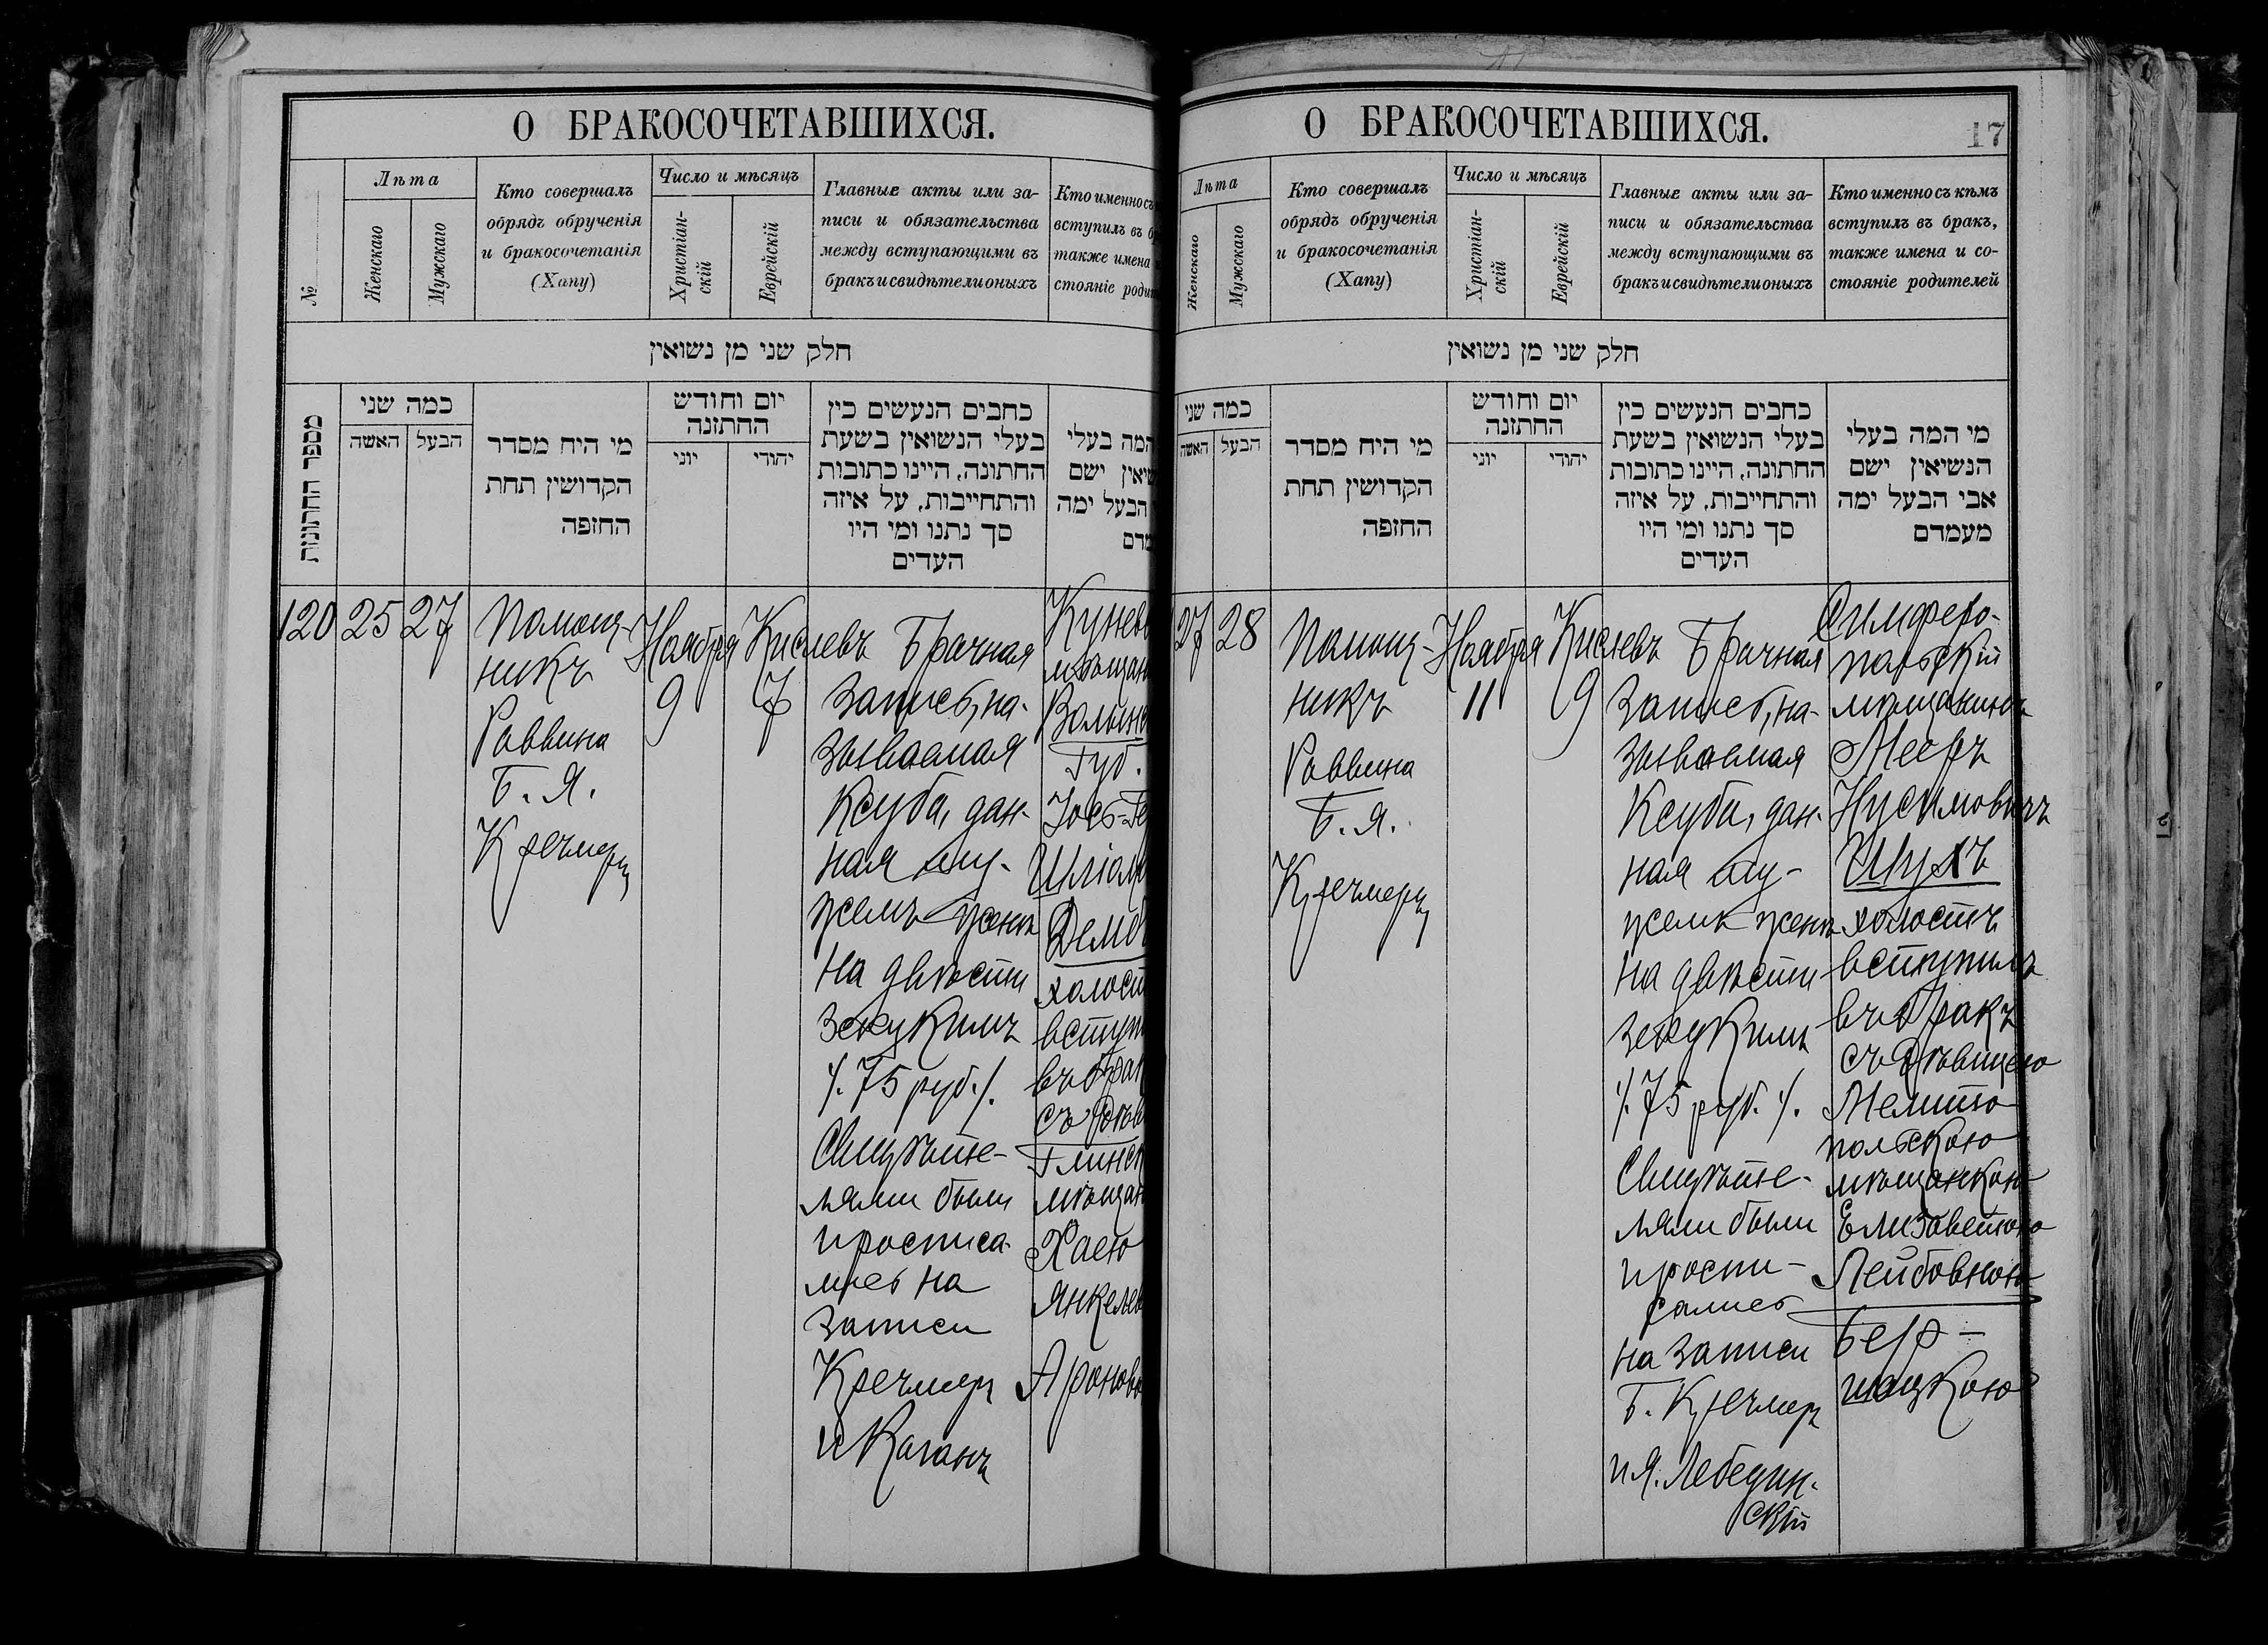 О БРАКОСОЧЕТАВШИХСЯ.
№
Лѣта
Женскаго
Мужскаго
Кто совершалъ
обрядъ обрученія
и бракосочетанія
(Хапу)
Число и мѣсяцъ
Христіан-
скій
Еврейскій
Главные акты или за-
писи и обязательства
между вступающими въ
бракъ и свидѣтели оныхъ
Кто именно съ
вступилъ въ б
также имена
стояніе роди
חלק שני מן נשואין
מספר החתונות
כמה שני
האשה
הבעל
מי היח מסדר
הקדושין תחת
החופה
יום וחודש
החתונה
יוני
יהודי
כחבים הנעשים כין
בעלי הנשואין בשעת
החתונה, היינו כתובות
והתחייבות, על איזה
סך נתנו ומי היו
העדים
המה בעלי
שיאין ישם
הבעל ימה
מדם
120
25
27
Помощ-
никъ
Раввина
Б. Я.
Кречмеръ
Ноября
9
Кислевъ
7
Брачная
запись, на-
зываемая
Ксуба, дан-
ная му-
жемъ женѣ
на двѣсти
зекукимъ
/. 75 руб. /.
Свидѣте-
лями были
и росписа-
лись на
записи
Кречмеръ
и Каганъ
мѣщан
Волынс
Губ.
Іось-Ге
Шліом
Демб
холост
вступи
въ брак
съ дѣв
Глинск
мѣщан
Хаею
Янкелев
Ароново
О БРАКОСОЧЕТАВШИХСЯ.
17
Лѣта
Женскаго
Мужскаго
Кто совершалъ
обрядъ обрученія
и бракосочетанія
(Хапу)
Число и мѣсяцъ
Христіан-
скій
Еврейскій
Главные акты или за-
писи и обязательства
между вступающими въ
бракъ и свидѣтели оныхъ
Кто именно съ кѣмъ
вступилъ въ бракъ,
также имена и со-
стояніе родителей
חלק שני מן נשואין
כמה שני
האשה
הבעל
מי היח מסדר
הקדושין תחת
החופה
יום וחודש
החתונה
יוני
יהודי
כחבים הנעשים כין
בעלי הנשואין בשעת
החתונה, היינו כתובות
והתחייבות, על איזה
סך נתנו ומי היו
העדים
מי המה בעלי
הנשיאין ישם
אבי הבעל ימה
מעמדם
27
28
Помощ-
никъ
Раввина
Б. Я.
Кречмеръ
Ноября
11
Кислевъ
9
Брачная
запись, на-
зываемая
Ксуба, дан-
ная му-
жемъ женѣ
на двѣсти
зекукимъ
/. 75 руб. /.
Свидѣте-
лями были
и роспи-
сались
на записи
Б. Кречмеръ
и Я. Лебедин-
скій
Симферо-
польскій
мѣщанинъ
Мееръ
Нусимовичъ
Шухъ
холостъ
вступилъ
въ бракъ
съ дѣвицею
Мелито-
польскою
мѣщанкою
Елизаветою
Лейбовною
Бер-
шацкою